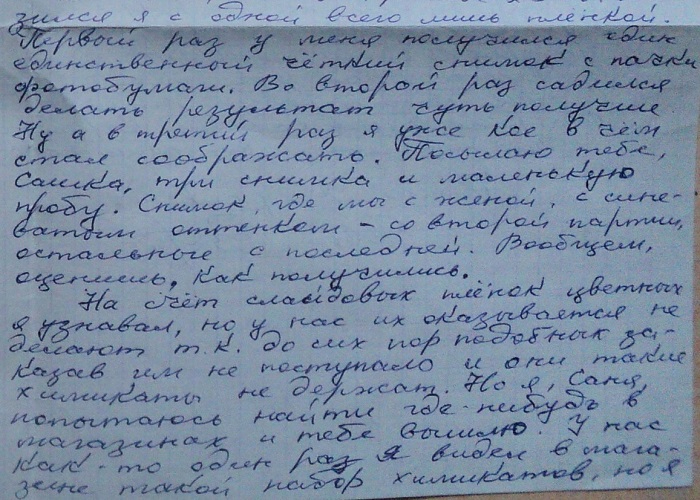 зился я с одной всего лишь плёнкой.
Первый раз у меня получился один
единственный чёткий снимок с пачки
фотобумаги. Во второй раз садился
делать результат чуть получше.
Ну а в третий раз я уже кое в чём
стал соображать. Посылаю тебе,
Сашка, три снимка и маленькую
пробу. Снимок, где мы с женой, с сине-
ватым оттенком – со второй партии,
остальные с последней. Вообщем,
оценишь, как получились.
На счёт слайдовых плёнок цветных
я узнавал, но у нас их оказывается не
делают т.к. до сих пор подобных за-
казав им не поступало и они такие
химикаты не держат. Но я, Саня,
попытаюсь найти где-нибудь в
магазинах и тебе вышлю. У нас
как-то один раз я видел в мага-
зине такой набор химикатов, но я